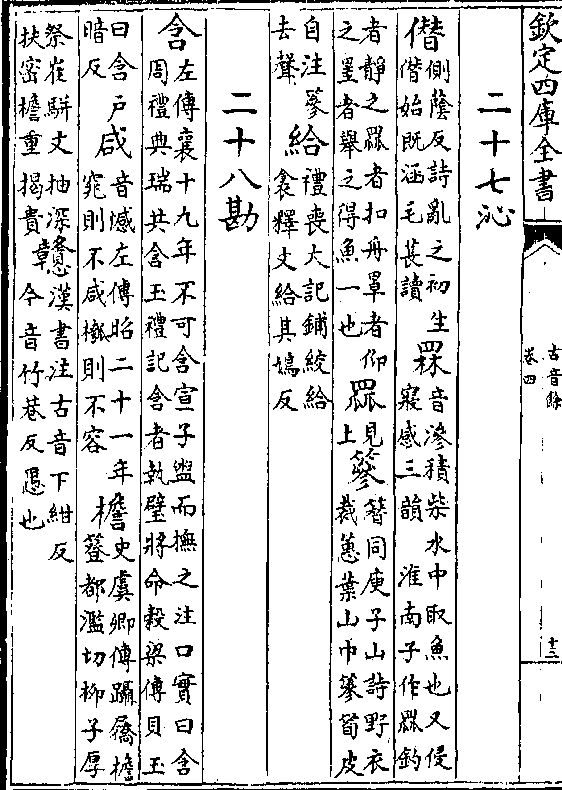 欽定四庫全書
古音餘
卷四
十三
二十七沁
僭側蔭反詩亂之初生
僭始既涵毛萇讀
罧音滲積柴水中取魚也又侵
寢感三韻淮南子作罧釣
者靜之罧者扣舟罩者仰
之罣者舉之得魚一也
罧見
上
篸簪同庾子山詩野衣
裁蕙葉山巾篸筍皮
自注篸
去聲
給禮喪大記鋪絞給
衾釋文給其鴆反
二十八勘
含左傳襄十九年不可含宣子盥而撫之注口實曰含
周禮典瑞共含玉禮記含者執璧將命穀梁傳貝玉
曰含戸
暗反
咸音憾左傳昭二十一年
窕則不咸槬則不容
檐史虞卿傳躡屩檐
簦都濫切柳子厚
祭崔駢文抽深
扶密檐重揭貴
戇漢書注古音下紺反
今音竹巷反愚也